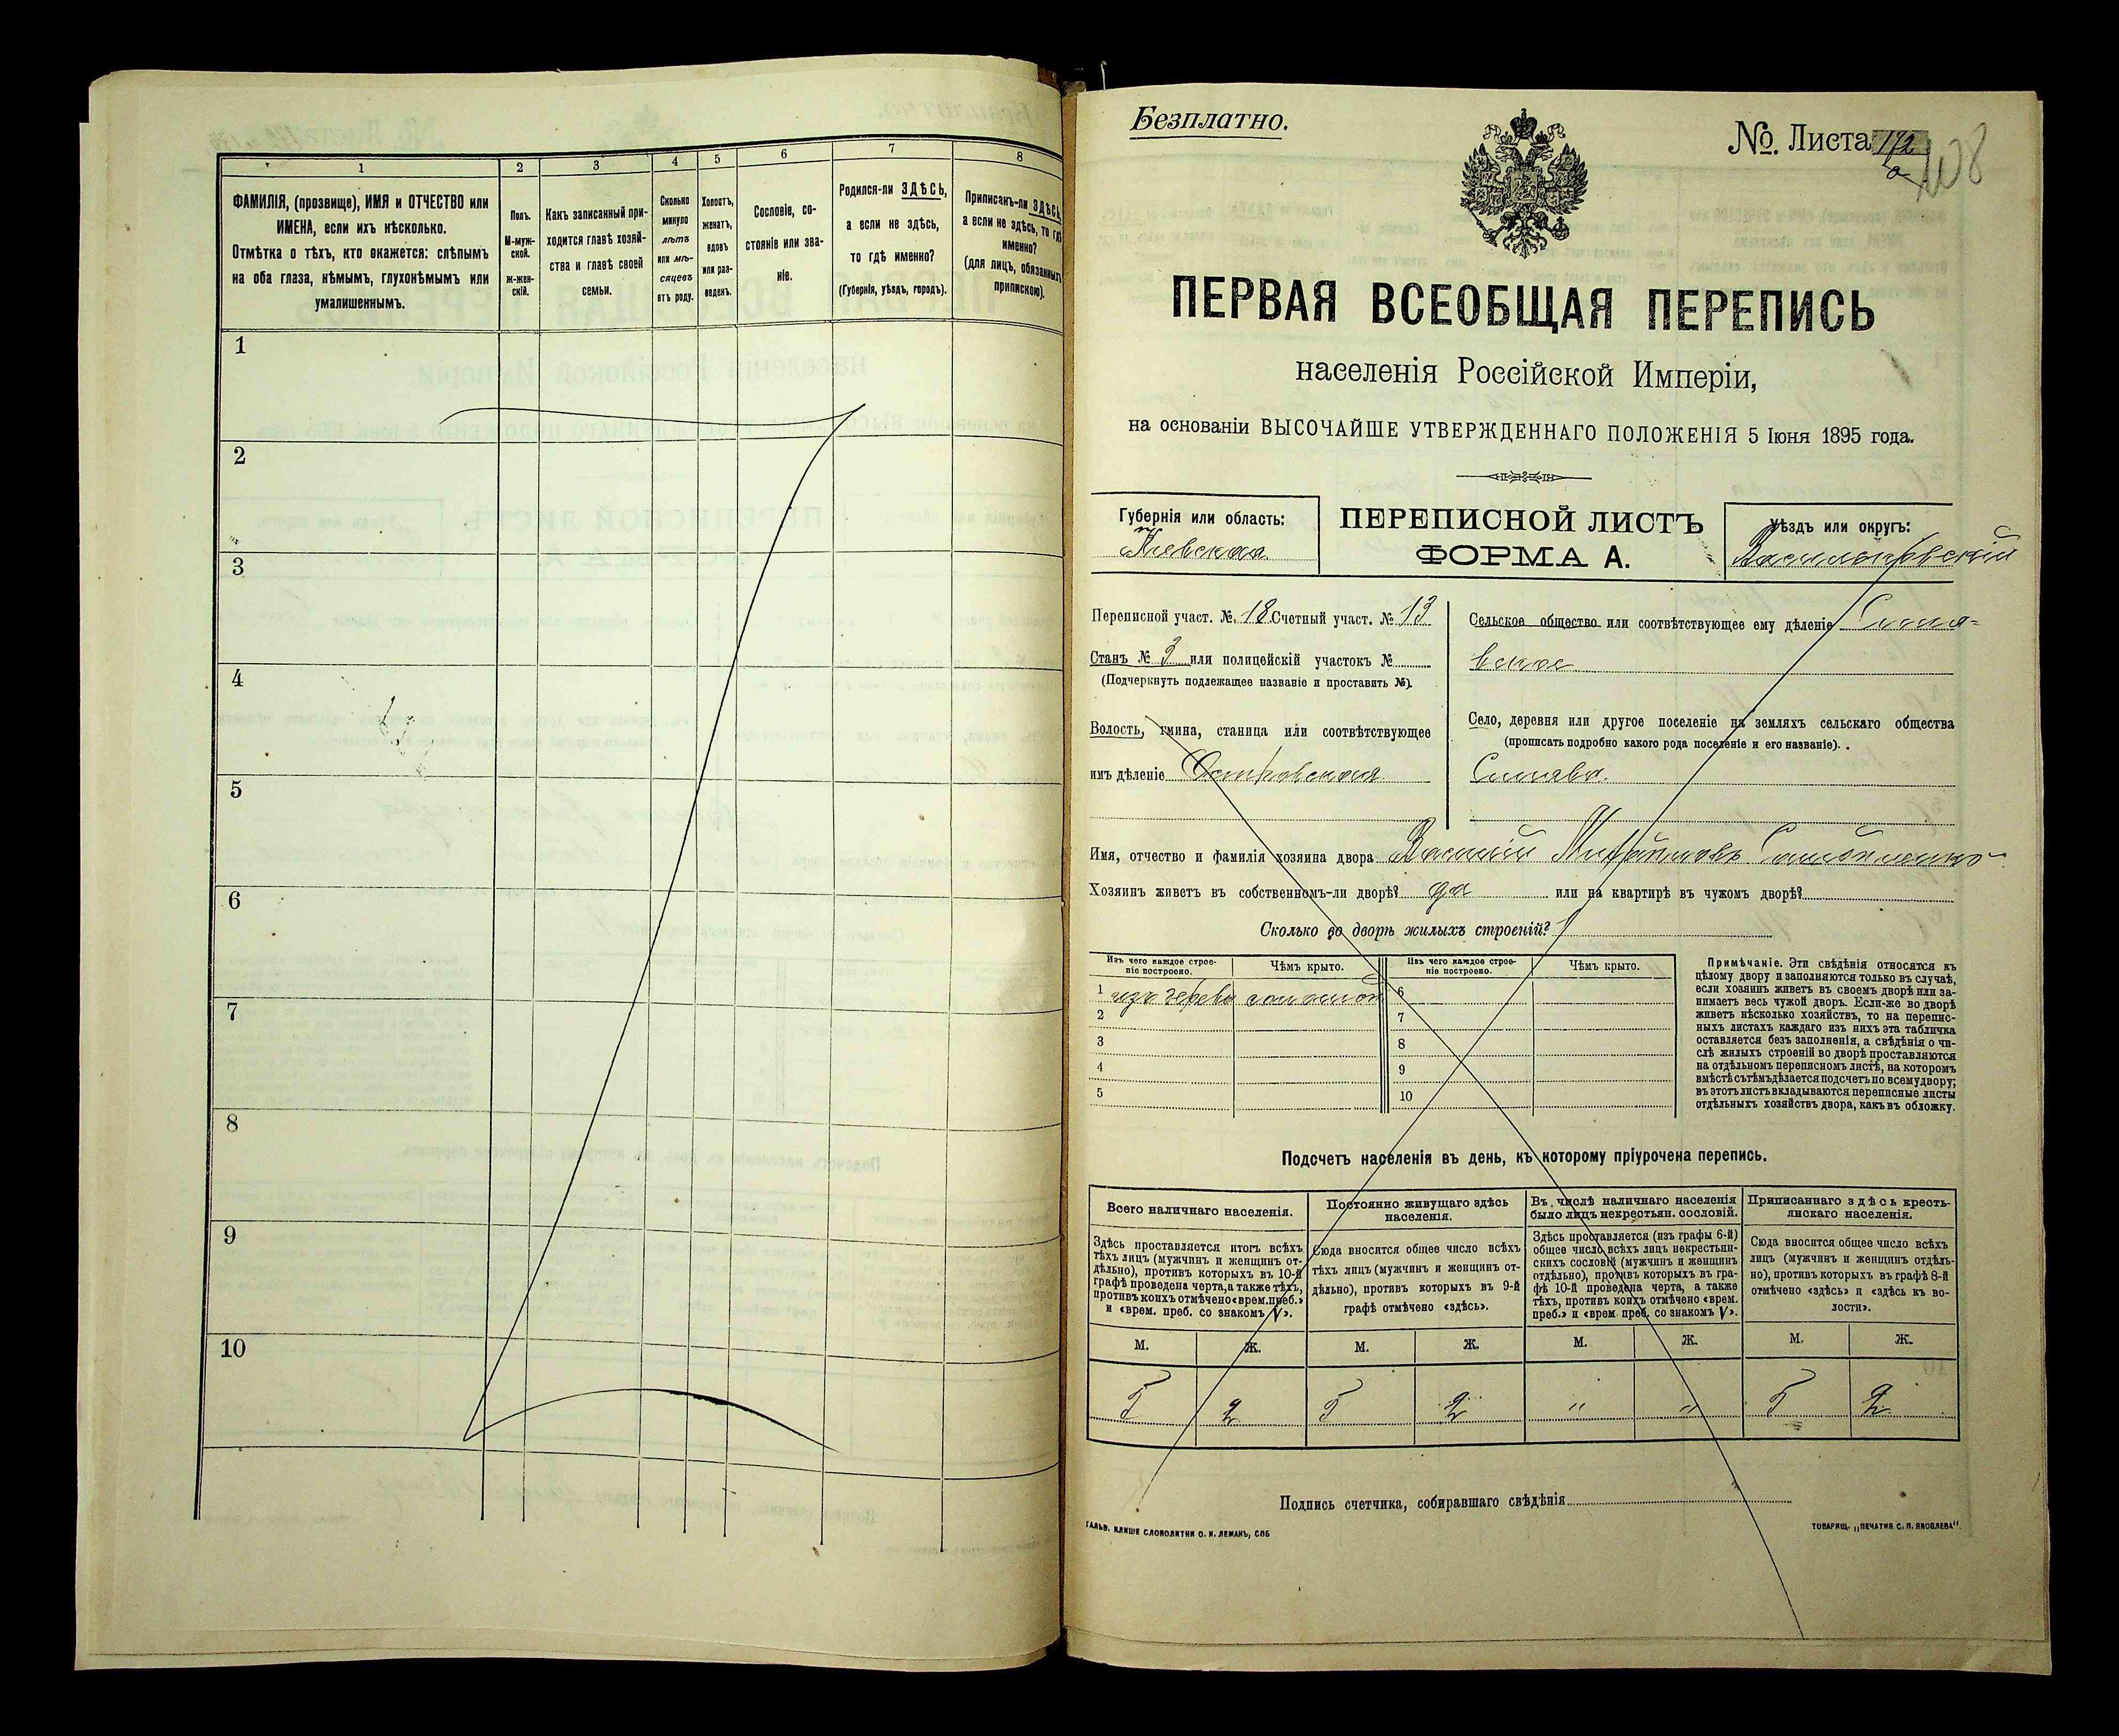 1 2 3 4 5 6 7 8
ФАМИЛІЯ, (прозвище), ИМЯ и ОТЧЕСТВО или
ИМЕНА, если ихъ нѣсколько.
Отмѣтка о тѣхъ, кто окажется: слѣпымъ
на оба глаза, нѣмымъ, глухонѣмымъ или
умалишеннымъ.
Полъ.
М-муж-
ской.
ж-жен-
скій.
Какъ записанный при-
ходится главѣ хозяй-
ства и главѣ своей
семьи.
Сколько
минуло
лѣтъ
или мѣ-
сяцевъ
отъ роду.
Холостъ,
женатъ,
вдовъ
или раз-
веденъ.
Сословіе, со-
стояніе или зва-
ніе.
Родился-ли ЗДѢСЬ,
а если не здѣсь,
то гдѣ именно?
(Губернія, уѣздъ, городъ).
Приписанъ-ли ЗДѢСЬ,
а если не здѣсь, то гдѣ
именно?
(для лицъ, обязанныхъ
припискою).
1
2
3
4
5
6
7
8
9
10
Безплатно.
№. Листа 172
208
ПЕРВАЯ ВСЕОБЩАЯ ПЕРЕПИСЬ
населенія Россійской Имперіи,
на основаніи ВЫСОЧАЙШЕ УТВЕРЖДЕННАГО ПОЛОЖЕНІЯ 5 Іюня 1895 года.
Губернія или область:
Кіевская
ПЕРЕПИСНОЙ ЛИСТЪ
ФОРМА А.
Уѣздъ или округъ:
Васильковскій
Переписной участ. №. 18 Счетный участ. № 13
Станъ № 3 или полицейскій участокъ №
(Подчеркнуть подлежащее названіе и проставить №).
Волость, гмина, станица или соотвѣтствующее
имъ дѣленіе Островская
Сельское общество или соотвѣтствующее ему дѣленіе Синя-
вское
Село, деревня или другое поселеніе на земляхъ сельскаго общества
(прописать подробно какого рода поселеніе и его названіе).
Синява.
Имя, отчество и фамилія хозяина двора Василій Михайловъ
Хозяинъ живетъ въ собственномъ-ли дворѣ? да или на квартирѣ въ чужомъ дворѣ?
Сколько во дворѣ жилыхъ строеній? 1
Изъ чего каждое строе-
ніе построено.
Чѣмъ крыто.
Изъ чего каждое строе-
ніе построено.
Чѣмъ крыто.
1 изъ дерева соломой 6
2 7
3 8
4 9
5 10
Примѣчаніе. Эти свѣдѣнія относятся къ
цѣлому двору и заполняются только въ случаѣ,
если хозяинъ живетъ въ своемъ дворѣ или за-
нимаетъ весь чужой дворъ. Если-же во дворѣ
живетъ нѣсколько хозяйствъ, то на перепис-
ныхъ листахъ каждаго изъ нихъ эта табличка
оставляется безъ заполненія, а свѣдѣнія о чи-
слѣ жилыхъ строеній во дворѣ проставляются
на отдѣльномъ переписномъ листѣ, на которомъ
вмѣстѣ съ тѣмъ дѣлается подсчетъ по всему двору;
въ этотъ листъ вкладываются переписные листы
отдѣльныхъ хозяйствъ двора, какъ въ обложку.
Подсчетъ населенія въ день, къ которому пріурочена перепись.
Всего наличнаго населенія.
Здѣсь проставляется итогъ всѣхъ
тѣхъ лицъ (мужчинъ и женщинъ от-
дѣльно), противъ которыхъ въ 10-й
графѣ проведена черта, а также тѣхъ,
противъ коихъ отмѣчено «врем. преб.»
и «врем. преб. со знакомъ V».
Постоянно живущаго здѣсь
населенія.
Сюда вносится общее число всѣхъ
тѣхъ лицъ (мужчинъ и женщинъ от-
дѣльно), противъ которыхъ въ 9-й
графѣ отмѣчено «здѣсь».
Въ числѣ наличнаго населенія
было лицъ некрестьян. сословій.
Здѣсь проставляется (изъ графы 6-й)
общее число всѣхъ лицъ некрестьян-
скихъ сословій (мужчинъ и женщинъ
отдѣльно), противъ которыхъ въ гра-
фѣ 10-й проведена черта, а также
тѣхъ, противъ коихъ отмѣчено «врем.
преб.» и «врем. преб. со знакомъ V».
Приписаннаго здѣсь кресть-
янскаго населенія.
Сюда вносится общее число всѣхъ
лицъ (мужчинъ и женщинъ отдѣль-
но), противъ которыхъ въ графѣ 8-й
отмѣчено «здѣсь» и «здѣсь къ во-
лости».
М. Ж. М. Ж. М. Ж. М. Ж.
5 2 5 2 " " 5 2
Подпись счетчика, собиравшаго свѣдѣнія
ГАЛЬВ. КЛИШЕ СЛОВОЛИТНИ О. И. ЛЕМАНЪ, СПБ
ТОВАРИЩ. „ПЕЧАТНЯ С. П. ЯКОВЛЕВА".